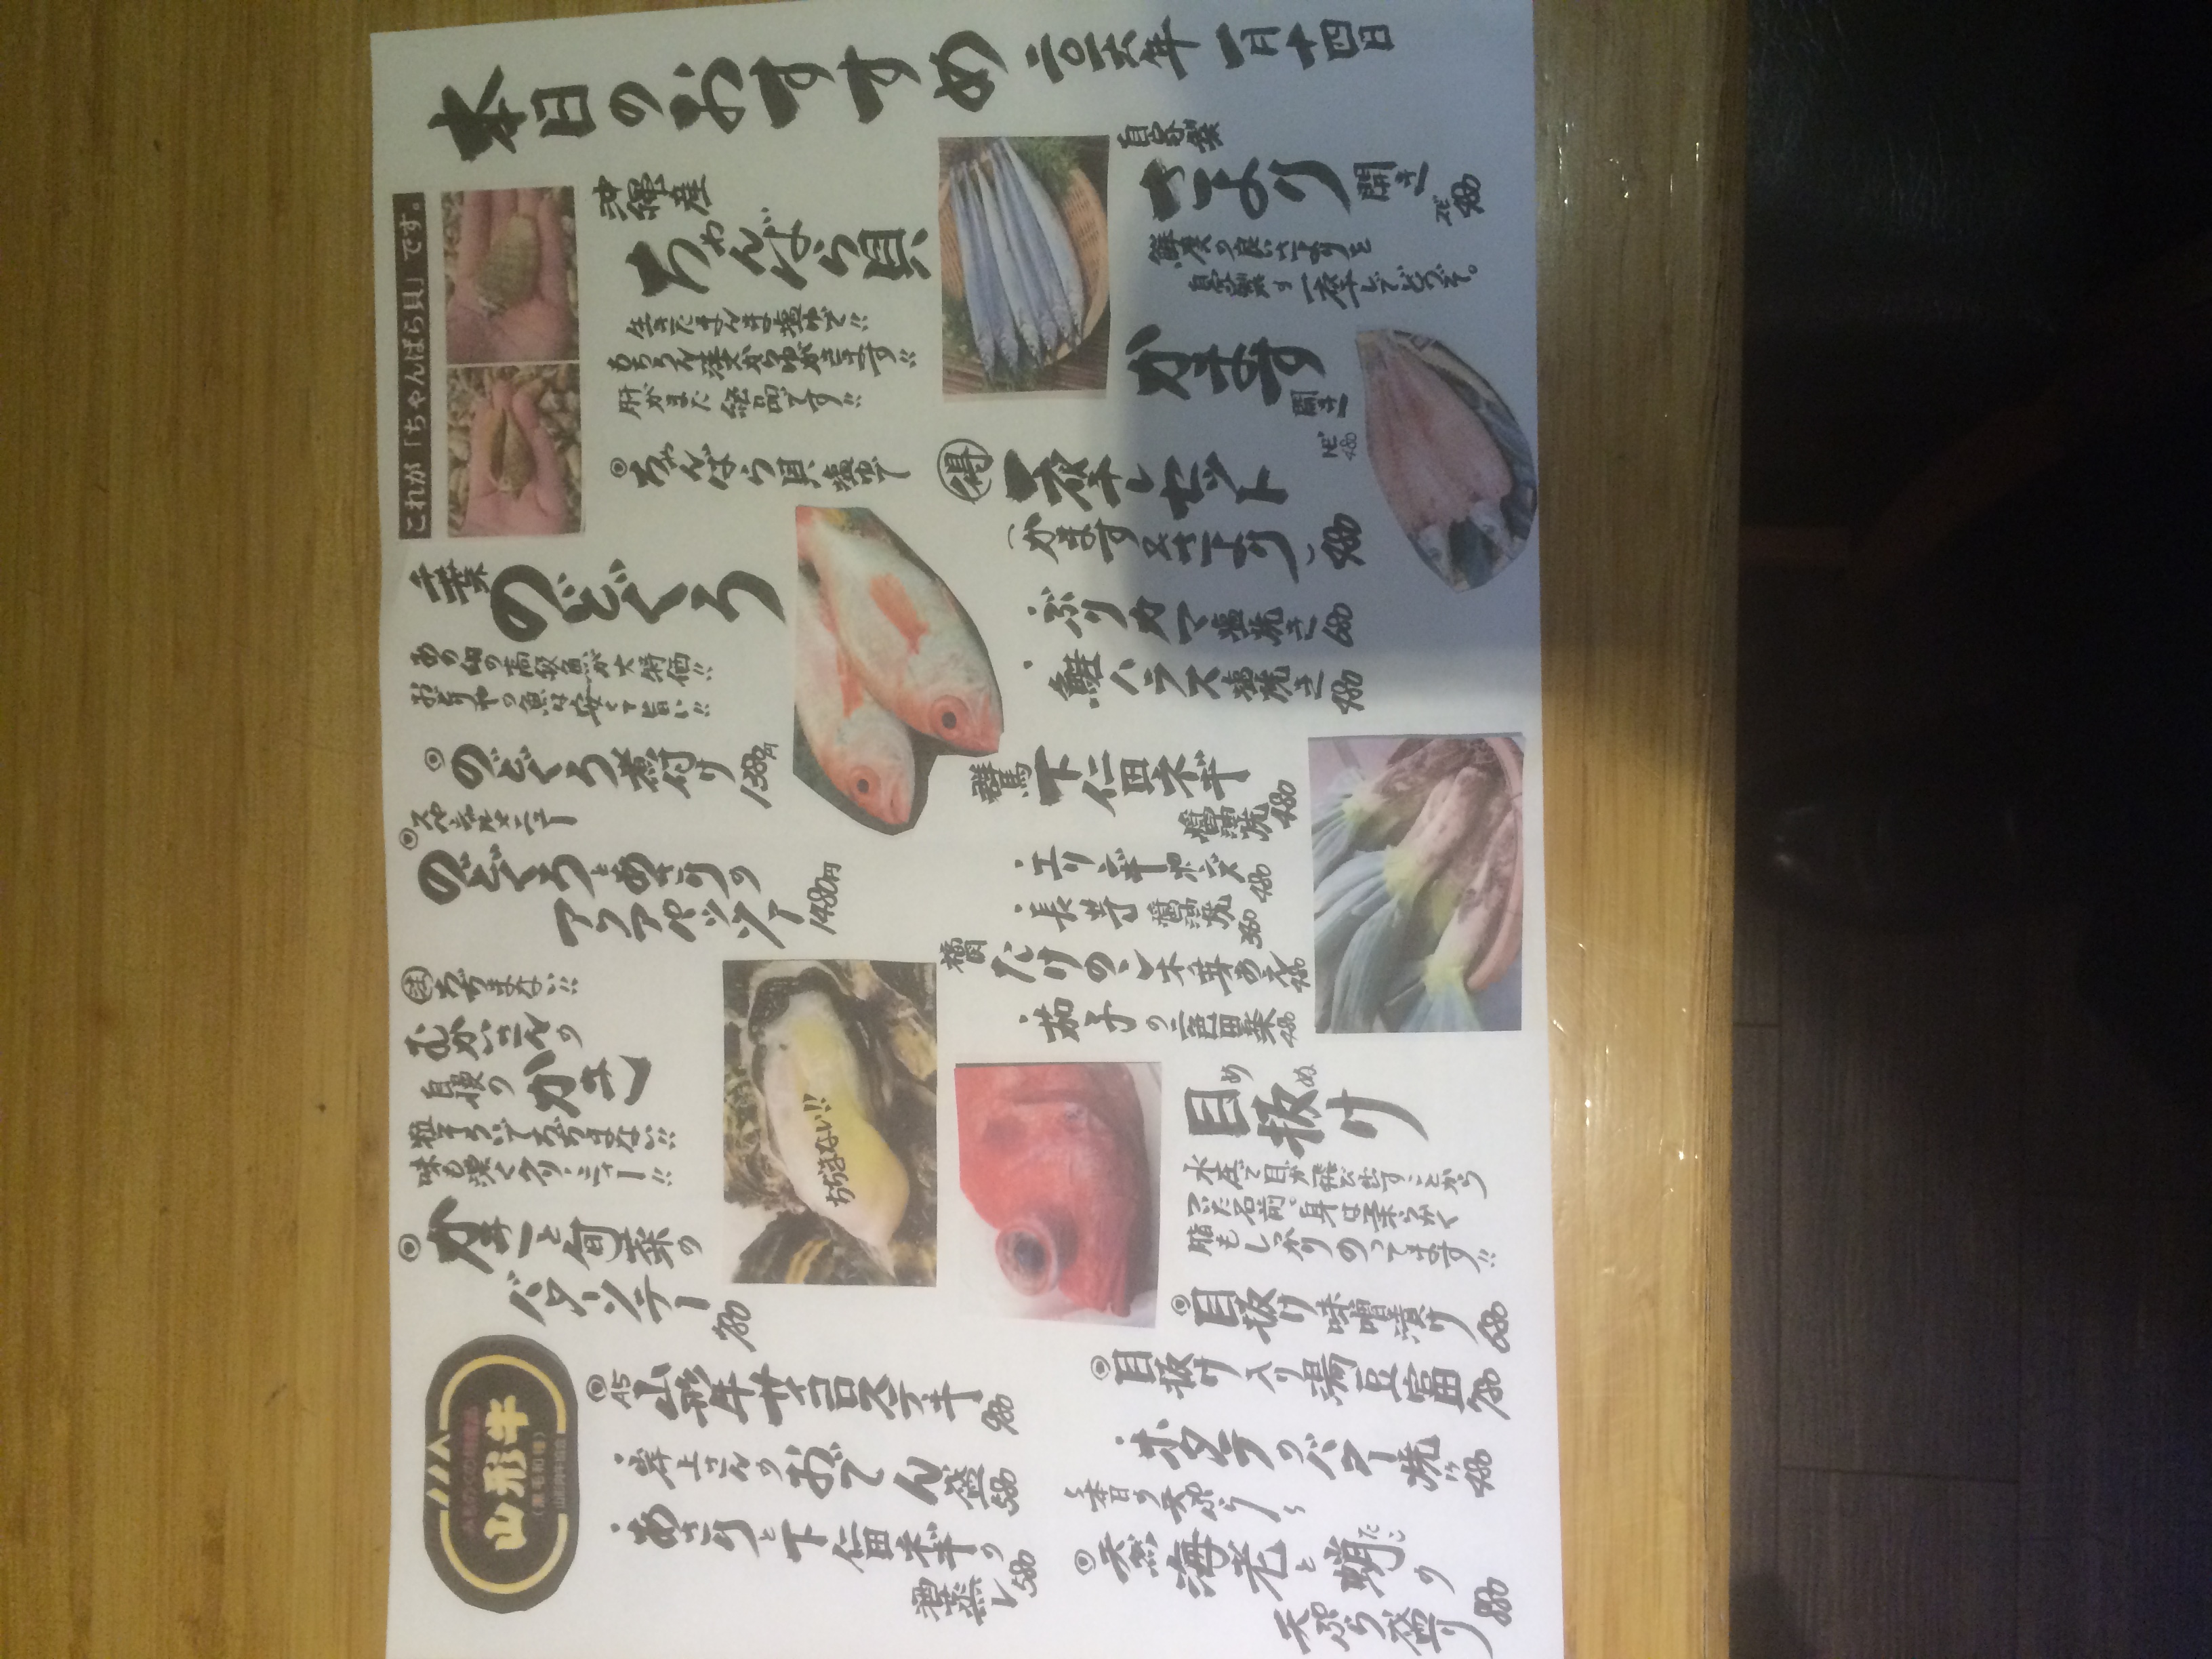 本日のおすすめ
二〇一六年 一月十四日
これが「ちゃんばら貝」です。
沖縄産
ちゃんばら貝
生きたまんま塩ゆで!!
もちろん注文から
肝がまた絶品です!!
◎ちゃんばら貝 塩ゆで
千葉
のどくろ
あの幻の高級魚が大特価!!
の魚は安くて旨い!!
◎のどぐろ煮付け 1380円
◎スペシャルメニュー
のどぐろとあさりの
アクアパッツァ 1480円
ちぢまない!!
むかいさんの
自慢のかき
粒ぞろいでちぢまない!!
味も濃くクリーミー!!
ちぢまない!!
◎かきと旬菜の
バターソテー 780
山形牛
(黒毛和種)
◎A5 山形牛サイコロステーキ 980
・井上さんのおでん盛 580
・あさりと下仁田ネギの
酒蒸し 580
自家製
さより 開き
鮮度の良いさよりを
自家製の一夜干しでどうぞ。
かます 開き
得 一夜干しセット
(かます&さより) 980
・ぶりカマ塩焼き 680
・鮭ハラス塩焼き 480
群馬 下仁田ネギ
醤油焼 480
・エリンギーポンズ 480
・長芋醤油焼 380
福岡 たけのこ木の芽あえ 480
・茄子の二色田楽 480
目抜け
め ぬ
水圧で目が飛び出すことから
ついた名前。身は柔らかく
脂もしっかりのってます!!
◎目抜け味噌漬け 680
◎目抜け入り湯豆富 780
・ホタテのバター焼 480
〜本日の天ぷら〜
◎天然海老と蛸の
たこ
天ぷら盛り 880